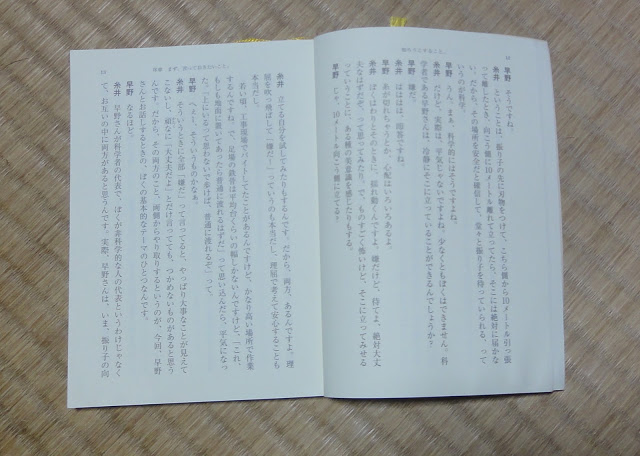 早野 そうですね。
糸井 ということは、振り子の先に刃物をつけて、こちら側から10メートル引っ張
って離したとき、向こう側に10メートル離れて立ってたら、そこには絶対に届かな
い。だから、その場所を安全だと確信して、堂々と振り子を待っていられる、って
いうのが科学。
早野 うん、まぁ、科学的にはそうですよね。
糸井 だけど、実際は、平気じゃないですよね。少なくともぼくはできません。科
学者である早野さんは、冷静にそこに立っていることができるんでしょうか？
早野 嫌だ。
糸井 ははは、即答ですね。
早野 糸が切れちゃうとか、心配はいろいろあるよ。
糸井 ぼくはわりとそのときに、揺れ動くんですよ。嫌だけど、待てよ、絶対大丈
夫なはずだぞ、って思ってみたり。で、ものすごく怖いけど、そこに立ってみせる
っていうことに、ある種の英雄感を感じたりもする。
早野 じゃ、10メートル向こう側に立てる？
序章 まず、言っておきたいこと。
糸井 立てる自分を試してみたりもするんです。だから、両方、あるんですよ。理
屈を吹っ飛ばして「嫌だ！」っていうのも本当だし、理屈で考えて安心することも
本当だし。
若い頃、工事現場でバイトしてたことがあるんですけど、かなり高い場所で作業
するんですね。で、足場の鉄骨は平均台くらいの幅しかないんですけど、「これ、
もしも地面に置いてあったら普通に渡れるはずだ」って思い込んだら、平気になっ
た。「とにかく落ちるって思わないで歩けば、普通に渡れるぞ」って
早野 へぇー、そういうものかなぁ。
糸井 そういうときに全部「嫌だ」って言ってると、やっぱり大事なことが見えて
こないし、頑なに「大丈夫だよ」とだけ言ってても、つかめないものがあると思う
んです。だから、その両方のこと、両側からやり取りするというのが、今回、早野
さんとお話しするときの、ぼくの基本的なテーマのひとつなんです。
早野 なるほど。
糸井 早野さんが科学者の代表で、ぼくが非科学的な人の代表というわけじゃなく
て、お互いの中に両方があると思うんです。実際、早野さんは、いま、振り子の向